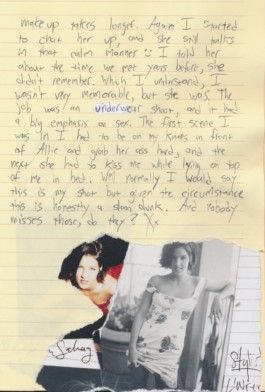 makeup takes longer. Again I started
to chat her up and she still talks
in that calm manner :) I told her
about the time we met years before, she
didn't remember. Which I understand, I
wasn't very memorable, but she was. The
job was an underwear shoot, and it had
a big emphasis on sex. The first scene I
was in I had to be on my knees in front
of Allie and grab her ass hard, and the
next she had to kiss me while lying on top
of me in bed. Well normally I would say
this is my shot but given the circumstance
this is honestly a slam dunk. And nobody
misses those, do they? Xx